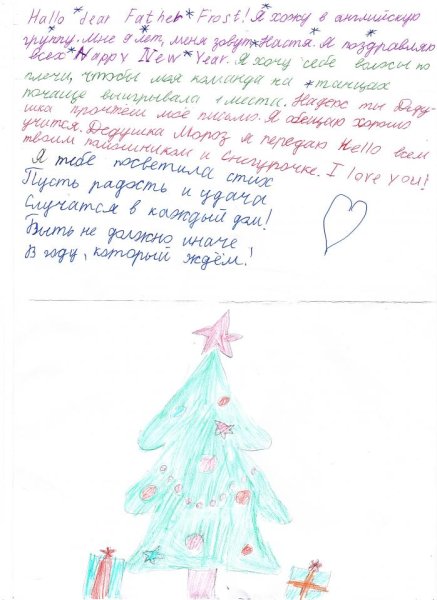 Hallo dear Father Frost! Я хожу в английскую
группу. Мне 9 лет, меня зовут Настя. Я поздравляю
всех Happy New Year. Я хочу себе волосы по
плечи, чтобы моя команда на танцах
почаще выигрывала 1 места. Надеюс ты Деду-
шка прочтёш моё письмо. Я обещаю хорошо
учится. Дедушка Мороз я передаю Hello всем
твоим помошникам и Снегурочке. I love you!
Я тебе посветила стих
Пусть радость и удача
Случатся в каждый дом!
Быть не должно иначе
В году, который ждём!